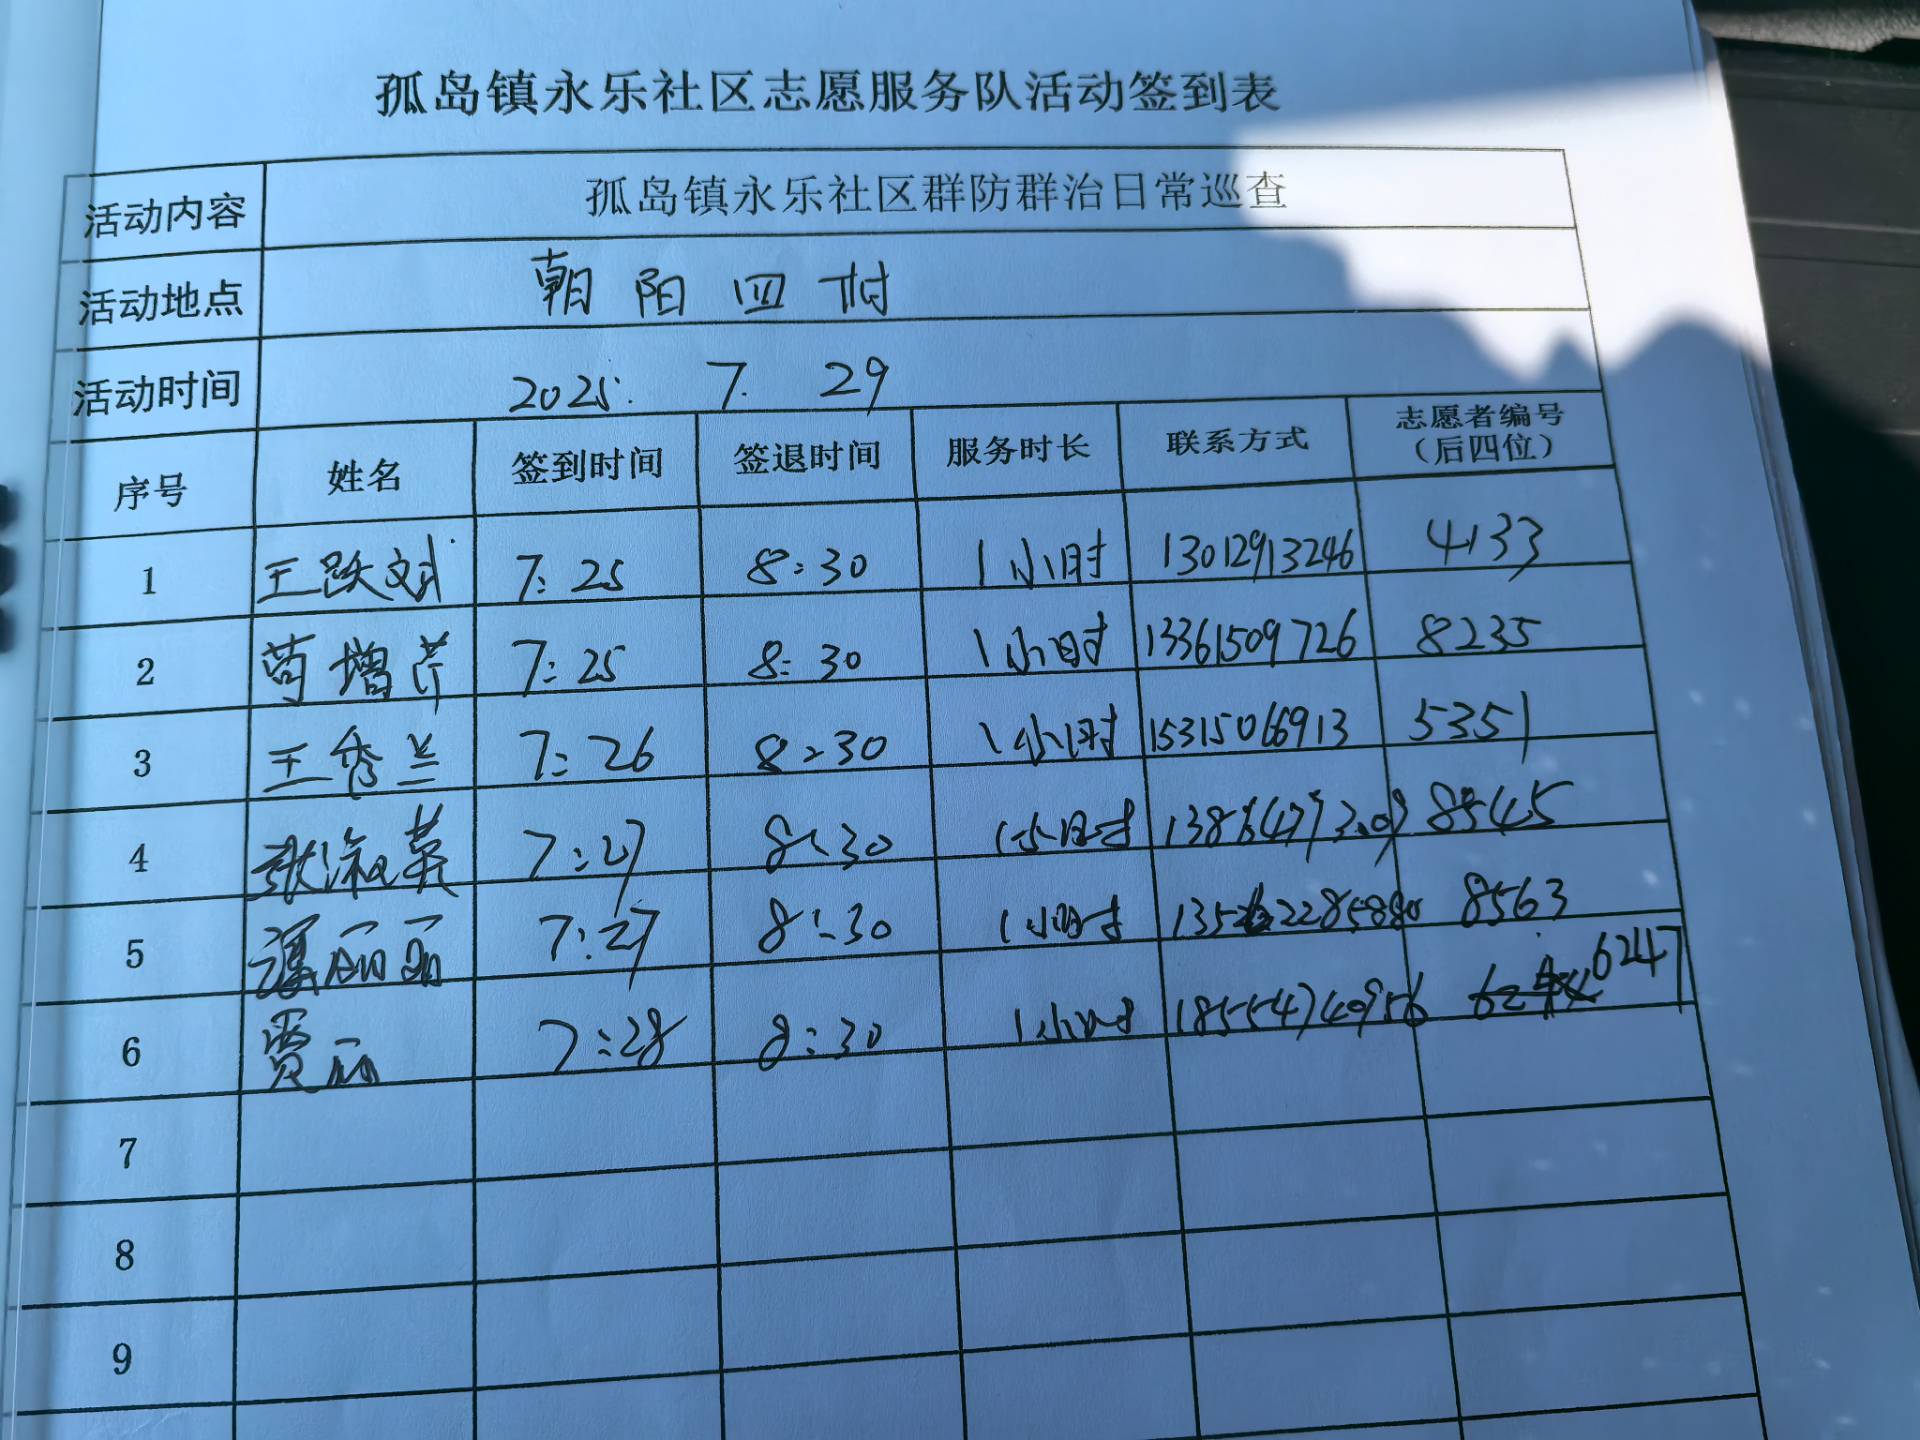 孤岛镇永乐社区志愿服务队活动签到表
活动内容 孤岛镇永乐社区群防群治日常巡查
活动地点 朝阳四村
活动时间 2025. 7. 29
序号 姓名 签到时间 签退时间 服务时长 联系方式 志愿者编号（后四位）
1 王跃斌 7:25 8:30 1小时 13012913246 4133
2 苟增芹 7:25 8:30 1小时 13361509726 8235
3 王秀兰 7:26 8:30 1小时 15315066913 5351
4 张淑英 7:27 8:30 1小时 8545
5 丽丽 7:27 8:30 1小时 8563
6 贾丽 7:28 8:30 1小时 18554740956 6247
7
8
9